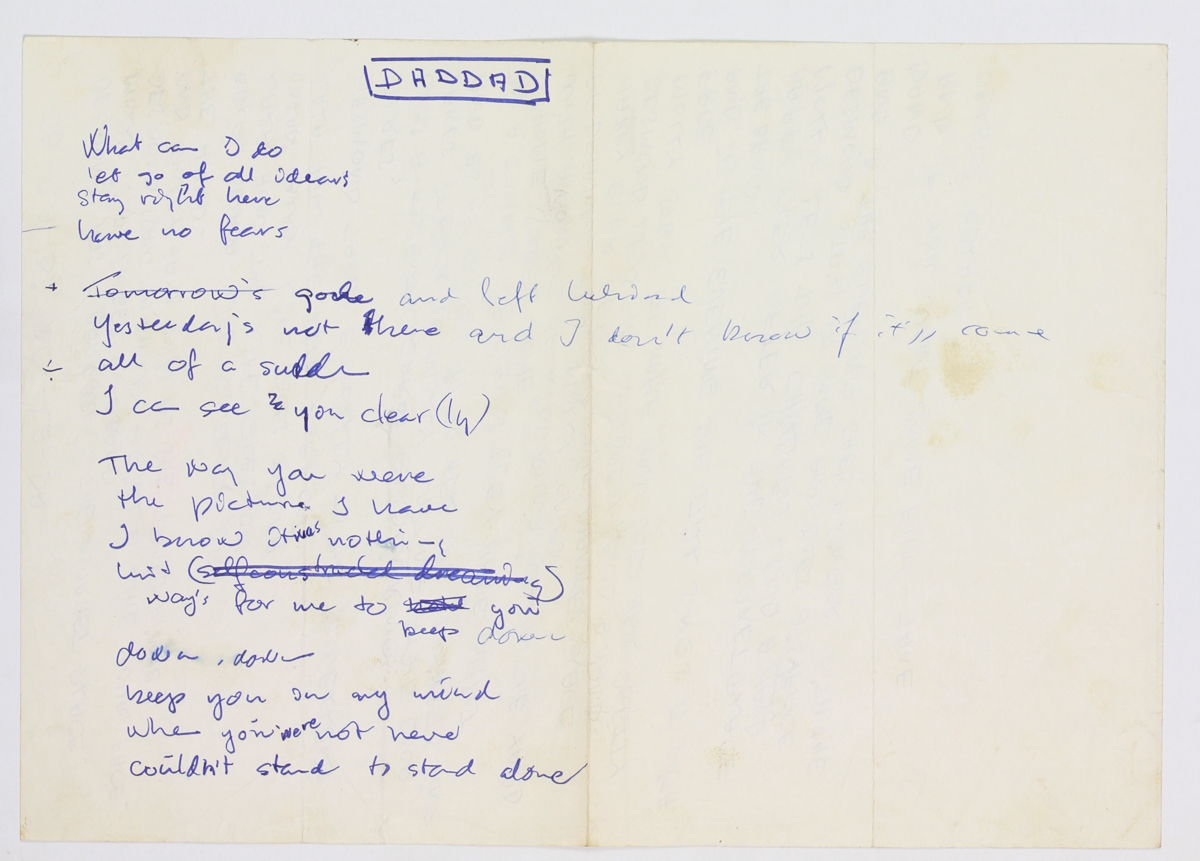 DADDAD
What can I do
let go of all idears
stay right here
have no fears
+ Tomorrow's gone and left behind
Yesterday's not there and I don't know if it'll come
÷ all of a sudde
I can see you clear(ly)
The way you were
the picture I have
I know it was nothing
but (selfconstructed dreaming)
way's for me to hold you
keep down
down, down
keep you on my mind
when you were not here
couldn't stand to stand alone